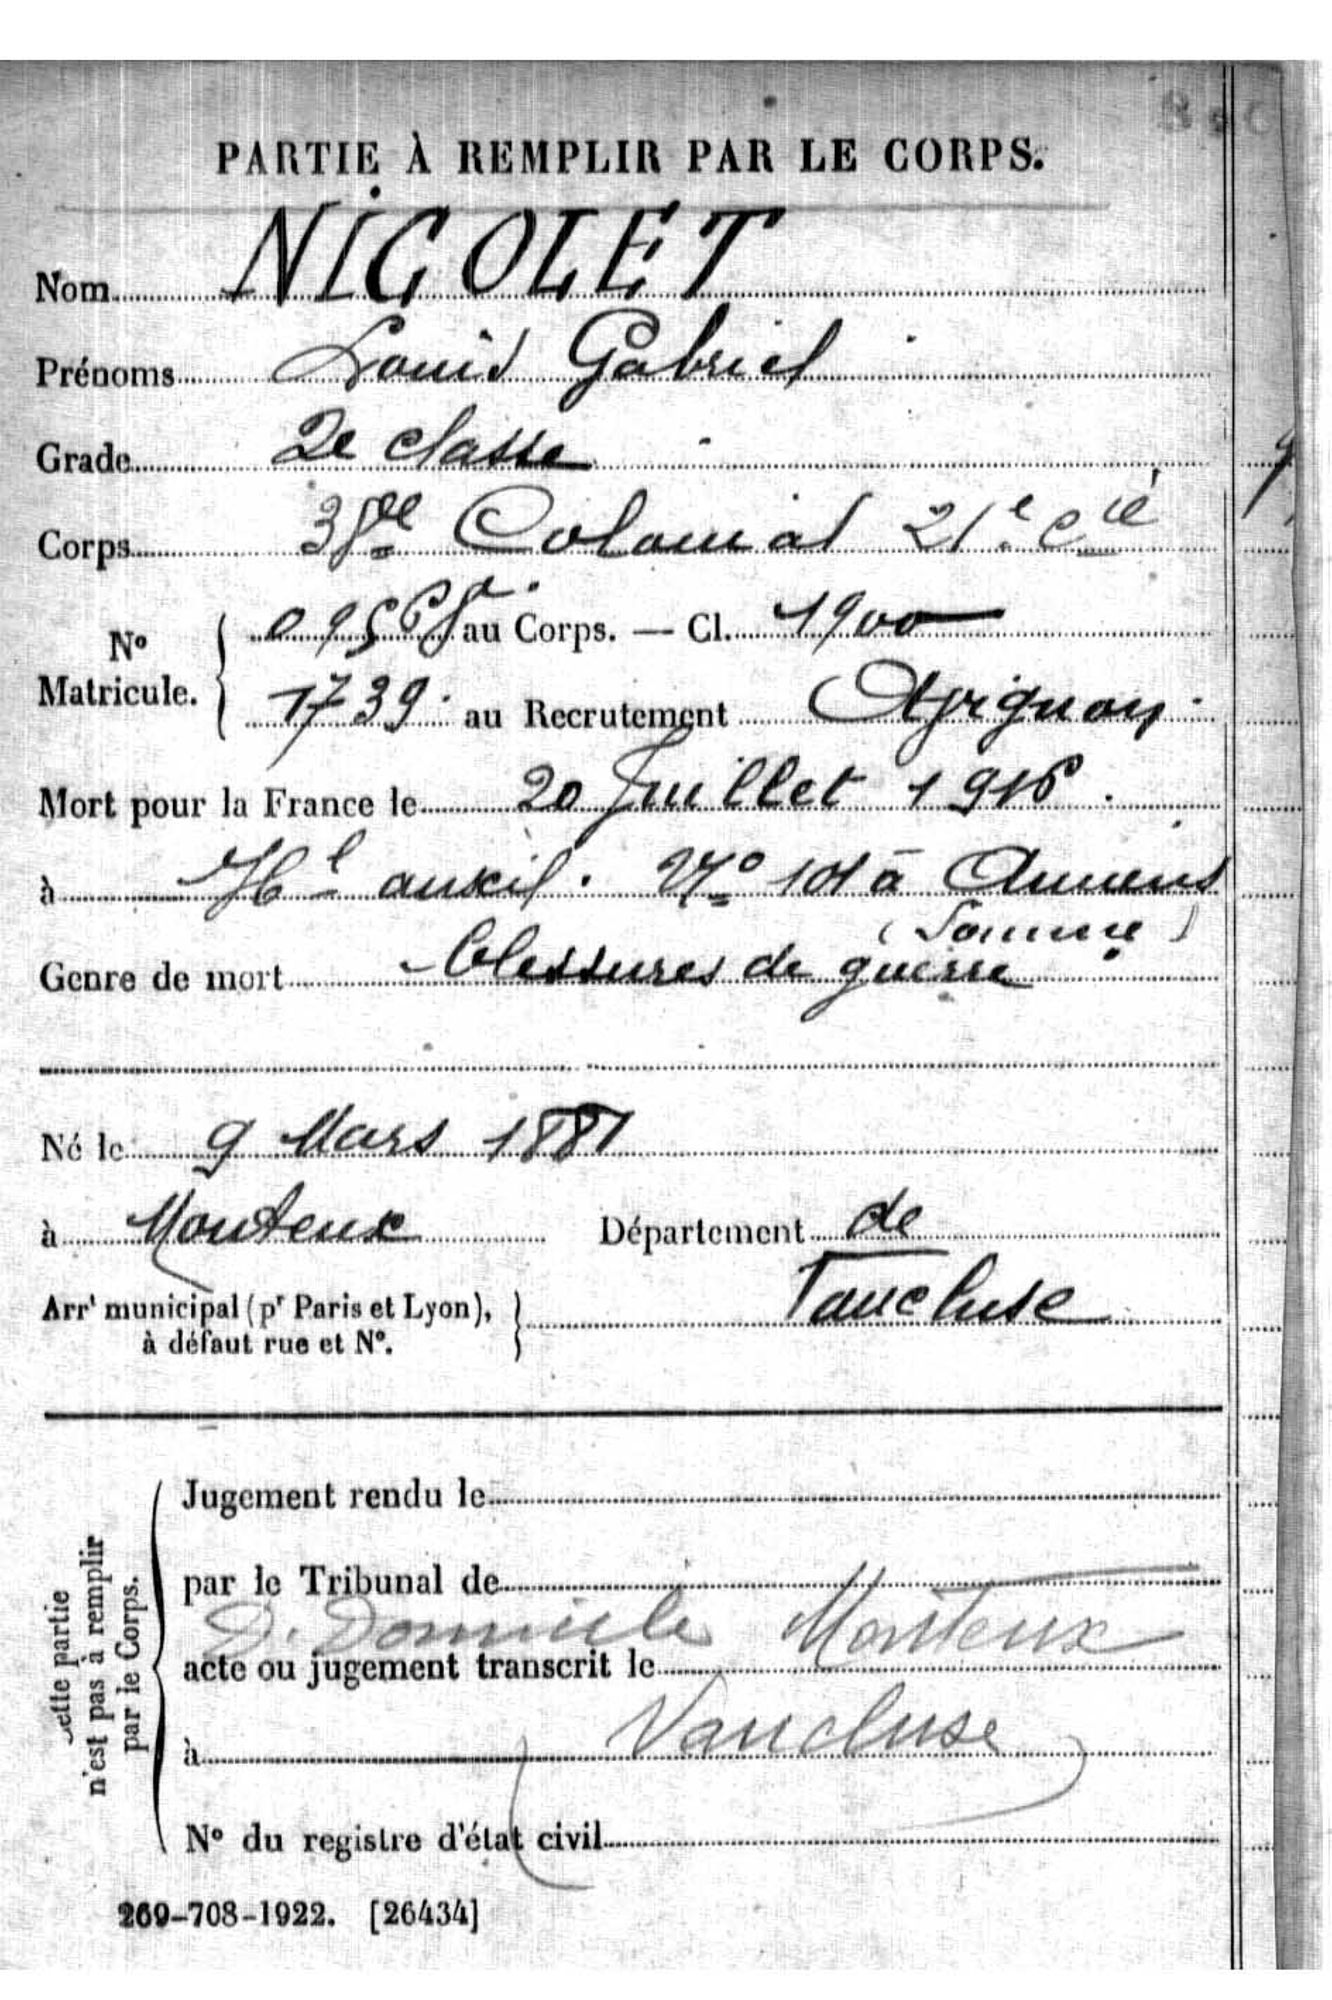 PARTIE À REMPLIR PAR LE CORPS.
Nom NICOLET
Prénoms Louis Gabriel
Grade 2e classe
Corps Colonial 21e Cie
No Matricule. au Corps. — Cl. 1900
1739 au Recrutement Avignon
Mort pour la France le 20 Juillet 1916
à Hl auxil. No 101 à Amiens
(Somme)
Genre de mort blessures de guerre
Né le 9 Mars 1881
à Monteux Département de
Vaucluse
Arrt municipal (pr Paris et Lyon),
à défaut rue et No.
Cette partie
n'est pas à remplir
par le Corps.
Jugement rendu le
par le Tribunal de
D. Domicile Monteux
acte ou jugement transcrit le
à Vaucluse
No du registre d'état civil
269-708-1922. [26434]